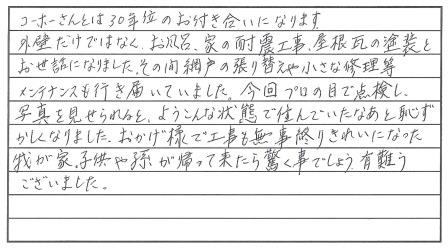 コーホーさんとは30年位のお付き合いになります
外壁だけではなく、お風呂、家の耐震工事、屋根瓦の塗装と
お世話になりました。その間網戸の張り替えや小さな修理等
メンテナンスも行き届いていました。今回プロの目で点検し、
写真を見せられると、ようこんな状態で住んでいたなあと恥ず
かしくなりました。おかげ様で工事も無事終りきれいになった
我が家、子供や孫が帰って来たら驚く事でしょう。有難う
ございました。